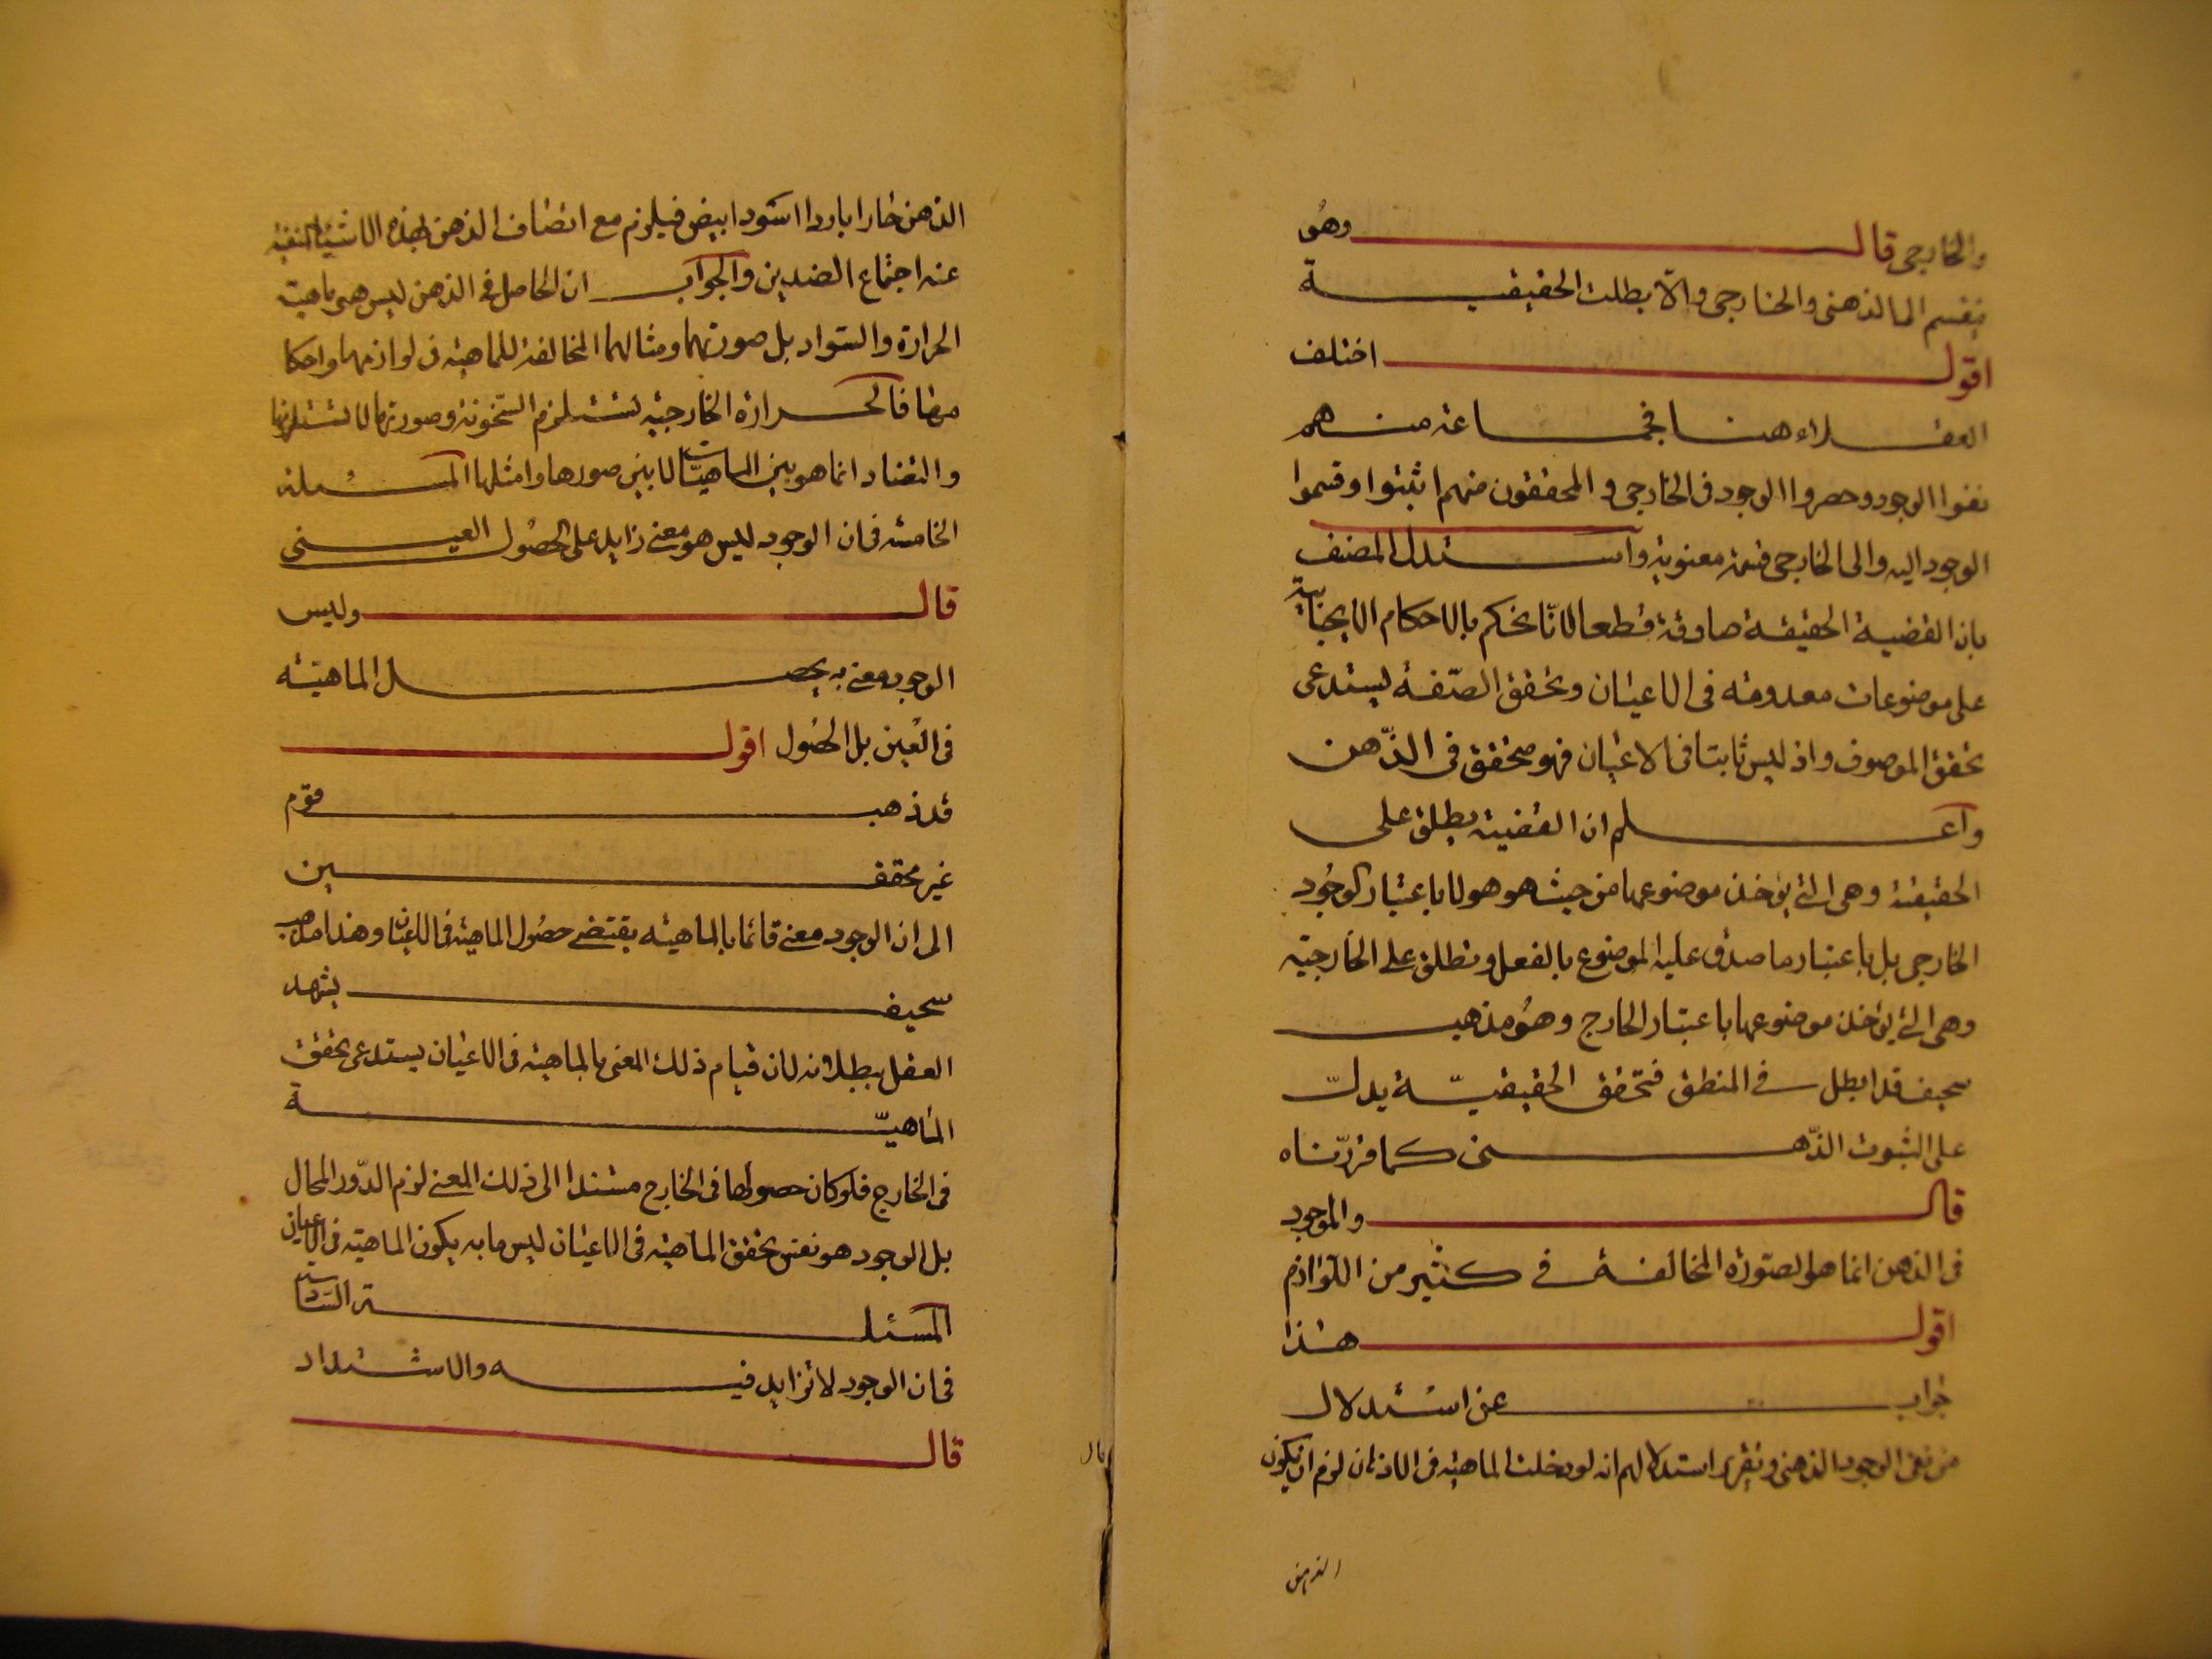 والخارجی قال وهو
ینقسم الی الذهنی والخارجی والا بطلت الحقیقیة
اقول اختلف
العقلاء هنا فجماعة منهم
نفوا الوجود وحصروا الوجود فی الخارجی و المحققون منهم اثبتوا وقسموا
الوجود الیه والی الخارجی قسمة معنویة واستدل المصنف
بان القضیة الحقیقة صادقة قطعا لانّا نحکم بالاحکام الایجابیة
علی موضوعات معدومة فی الاعیان وتحقق الصّفة یستدعی
تحقق الموصوف واذ لیس ثابتا فی الاعیان فهو متحقق فی الذّهن
واعلم ان القضیة یطلق علی
الحقیقیة وهی التی یؤخذ موضوعها من حیث هو هو لا باعتبار الوجود
الخارجی بل باعتبار ما صدق علیه الموضوع بالفعل وتطلق علی الخارجیة
وهی التی یؤخذ موضوعها باعتبار الخارج وهو مذهب
سخیف قد ابطل فی المنطق فتحقق الحقیقیّة یدلّ
علی الثبوت الذّهنی کما قرّرناه
قال والموجود
فی الذهن انما هو الصّورة المخالفة فی کثیر من اللّوازم
اقول هذا
جواب عن استدلال
من نفی الوجود الذهنی وتقریر استدلالهم انه لو دخلت الماهیة فی الاذهان لزم ان یکون
الذهن
الذهن حارا باردا اسود ابیض فیلزم مع اتصاف الذهن بهذه الاشیاء المنفیة
عنه اجتماع الضدین والجواب ان الحاصل فی الذهن لیس هی ماهیة
الحرارة والسّواد بل صورتهما ومثالهما المخالفة للماهیة فی لوازمها واحکا
مها فالحرارة الخارجیة تستلزم السّخونة وصورتها لا تستلزمها
والتضاد انما هو بین الماهیات لا بین صورها وامثلها المسئلة
الخامسة فی ان الوجود لیس هو معنی زاید علی الحصُول العینی
قال ولیس
الوجود معنی به یحصل الماهیّة
فی العین بل الحصُول اقول
قد ذهب قوم
غیر محققین
الی ان الوجود معنی قائما بالماهیة یقتضی حصُول الماهیة فی الاعیان وهذا مذهب
سخیف یشهد
العقل ببطلانه لان قیام ذلك المعنی بالماهیة فی الاعیان یستدعی تحقق
الماهیّة
فی الخارج فلو کان حصولها فی الخارج مستندا الی ذلك المعنی لزم الدّور المحال
بل الوجود هو نفس تحقق الماهیة فی الاعیان لیس ما به یکون الماهیّة فی الاعیان
المسئلة السّادسة
فی ان الوجود لا تزاید فیه والاشتداد
قال